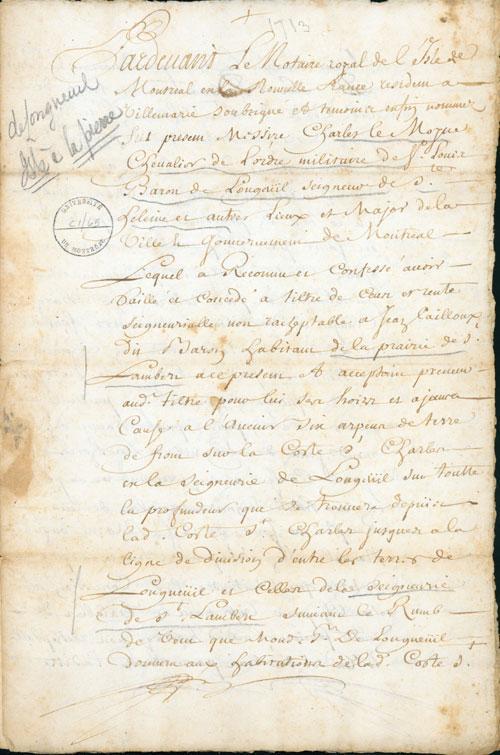 1713
Pardevant Le Notaire royal de l'Isle de
Montreal en la Nouvelle france resident a
Villemarie soubsigné et temoins enfin nommez
fut present Messire Charles le Moyne
Chevalier de l'ordre militaire de St. Louis
Baron de Longueüil seigneur de
Beleine et autres Lieux et Major de la
Ville & Gouvernement de Montreal
Lequel a Reconnu et Confessé avoir
Baillé et concedé a tiltre de Cens et rente
Seigneurialle non rachptable a Jean Cailloux
dit Baron habitant de la prairie de St.
Lambert a ce present et acceptant preneur
aud. tiltre pour lui ses hoirs et ayans
Cause a l'avenir six arpens de terre
de front sur la Coste St. Charles
en la seigneurie de Longueüil sur toutte
la profondeur qui se trouvera depuis
lad. Coste St. Charles jusques a la
ligne de division d'entre les terres de
Longueüil et Celles de la Seigneurie
de St. Lambert suivant le Rumb
de Vent que Mond. Sr. De Longueüil
donnera aux habitations de lad. Coste St.
de Longueuil
à
la pierre
UNIVERSITÉ
DE MONTRÉAL